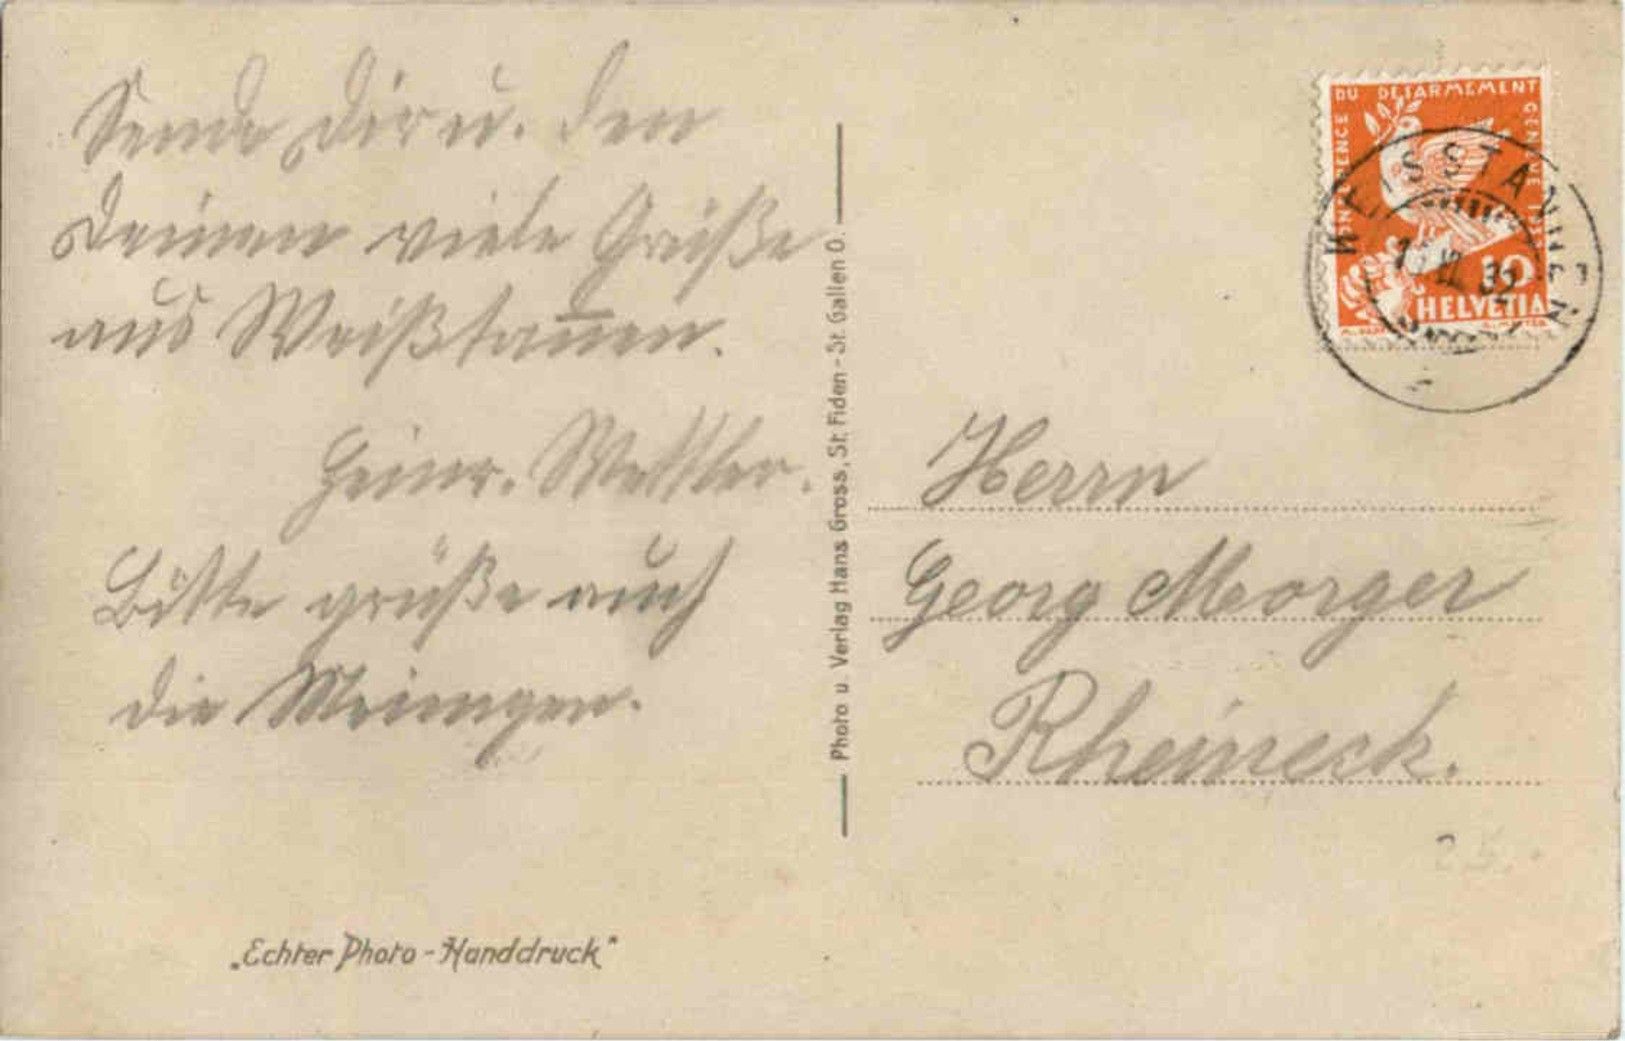 Sende Dir u. den
Deinen viele Grüße
aus Weißtannen.
Heinr. Wettler.
Bitte grüße auch
die Meinigen.
„Echter Photo-Handdruck“
Photo u. Verlag Hans Gross, St. Fiden-St. Gallen O.
CONFERENCE DU DESARMEMENT GENEVE 1932
10
HELVETIA
WEISSTANNEN
32
Herrn
Georg Morger
Rheineck.
25.